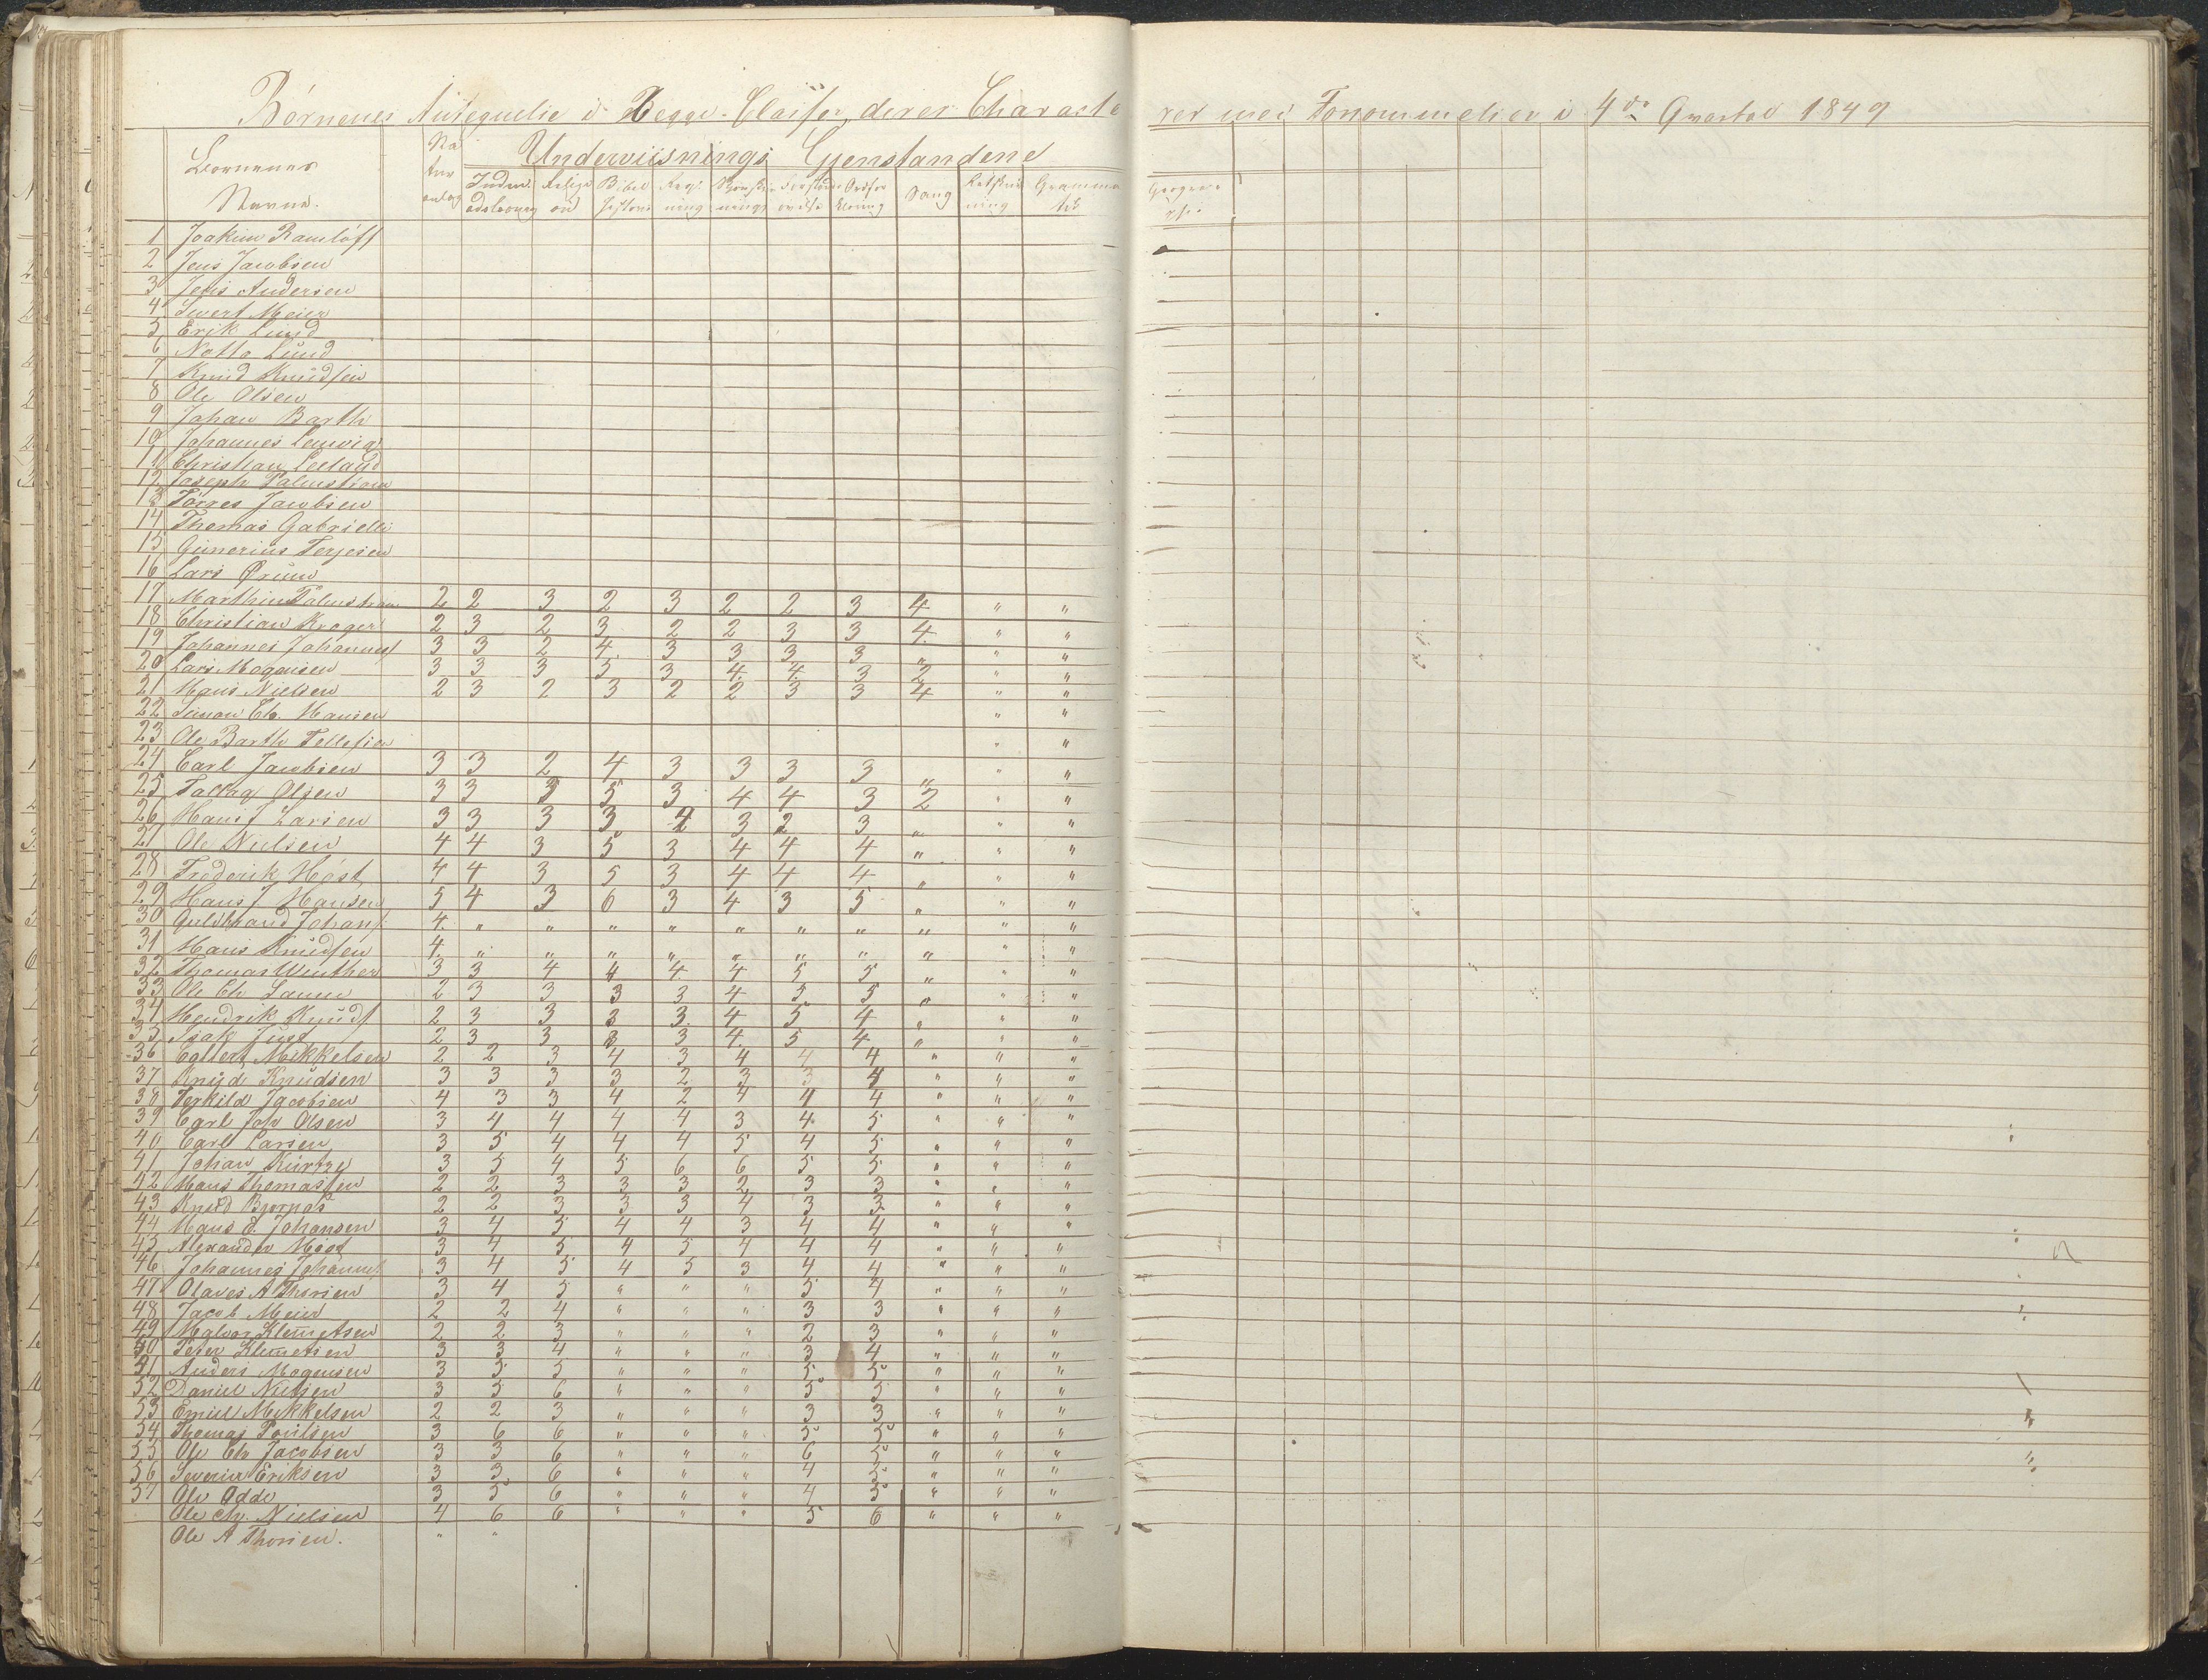 Børnenes i Begge Classer, deres Characte rer med i 4de Qvartal 1849
Underviisnings Gjenstandene
Børnenes Navne. Na tur anlæg Inden adslæsning Religi on Bibel historie Reg ning Skriv nings Sang Retskriv ning Gramma tik Geogra phi
1 Joakim Ramløff
2 Jens Jacobsen
3 Jens Andersen
4 Sivert Meier
5 Erik Lund
6 Notto Lund
7 Knud Knudsen
8 Ole Olsen
9 Johan Barth
10 Johannes
11 Christian
12 Joseph Palmstrøm
13 Törres Jacobsen
14 Thomas Gabriells
15 Gunerius Terjesen
16 Lars
17 Marthin Palmstrøm 2 2 3 2 3 2 2 3 4 " "
18 Christian Kroger 2 3 2 3 2 2 3 3 4 " "
19 Johannes Johannes 3 3 2 4 3 3 3 3 " " "
20 Lars Mogensen 3 3 3 5 3 4 4 3 2 " "
21 Hans Nielsen 2 3 2 3 2 2 3 3 4 " "
22 Simon Ch. Hansen " "
23 Ole Barth Tellefsen " "
24 Carl Jacobsen 3 3 2 4 3 3 3 3 " " "
25 Tallag Olsen 3 3 3 5 3 4 4 3 2 " "
26 Hans J Larsen 3 3 3 3 2 3 2 3 " " "
27 Ole Nielsen 4 4 3 5 3 4 4 4 " " "
28 Fredderik Høst 4 4 3 5 3 4 4 4 " " "
29 Hans J Hansen 5 4 3 6 3 4 3 5 " " "
30 Guldbrand Johans 4. " " " " " " " " " "
31 Hans Knudsen 4. " " " " " " " " " "
32 Thomas Winther 3 3 4 4 4 4 5 5 " " "
33 Ole Ch 2 3 3 3 3 4 5 5 " " "
34 Hendrik Knuds 2 3 3 3 3 4 5 4 " " "
35 Isak Just 2 3 3 3 3 4 5 4 " " "
36 Eallert Mikkelsen 2 2 3 4 3 4 4 4 " " "
37 Knud Knudsen 3 3 3 3 2 3 3 4 " " "
38 Terkild Jacobsen 4 3 3 4 2 4 4 4 " " "
39 Carl Joh Olsen 3 4 4 4 4 3 4 5 " " "
40 Carl Larsen 3 5 4 4 4 5 4 5 " " "
41 Johan Kurtze 3 5 4 5 6 6 5 5 " " "
42 Hans Thomassen 2 2 3 3 3 2 3 3 " " "
43 Knud Bjornøs 2 2 3 3 3 4 3 3 " " "
44 Hans d. Johansen 3 4 5 4 4 3 4 4 " " "
45 Alexander Høst 3 4 5 4 5 4 4 4 " " "
46 Johannes Johannes 3 4 5 4 5 3 4 4 " " "
47 Olaves A Thorsen 3 4 5 " " " 5 4 " " "
48 Jacob Meier 2 2 4 " " " 3 3 " " "
49 Halvor Klemetsen 2 2 3 " " " 2 3 " " "
50 Peter Klemetsen 3 3 4 " " " 3 4 " " "
51 Anders Mogensen 3 5 5 " " " 5 5 " " "
52 Daniel Nielsen 3 5 6 " " " 5 5 " " "
53 Emiel Mikkelsen 2 2 3 " " " 3 3 " " "
54 Thomas Poulsen 3 6 6 " " " 5 5 " " "
55 Ole Chr Jacobsen 3 3 6 " " " 6 5 " " "
56 Severin Eriksen 3 3 6 " " " 4 5 " " "
57 Ole Odde 3 5 6 " " " 4 5 " " "
Ole Chr. Nielsen 4 6 6 " " " 5 6 " " "
Ole A Thorsen. " "